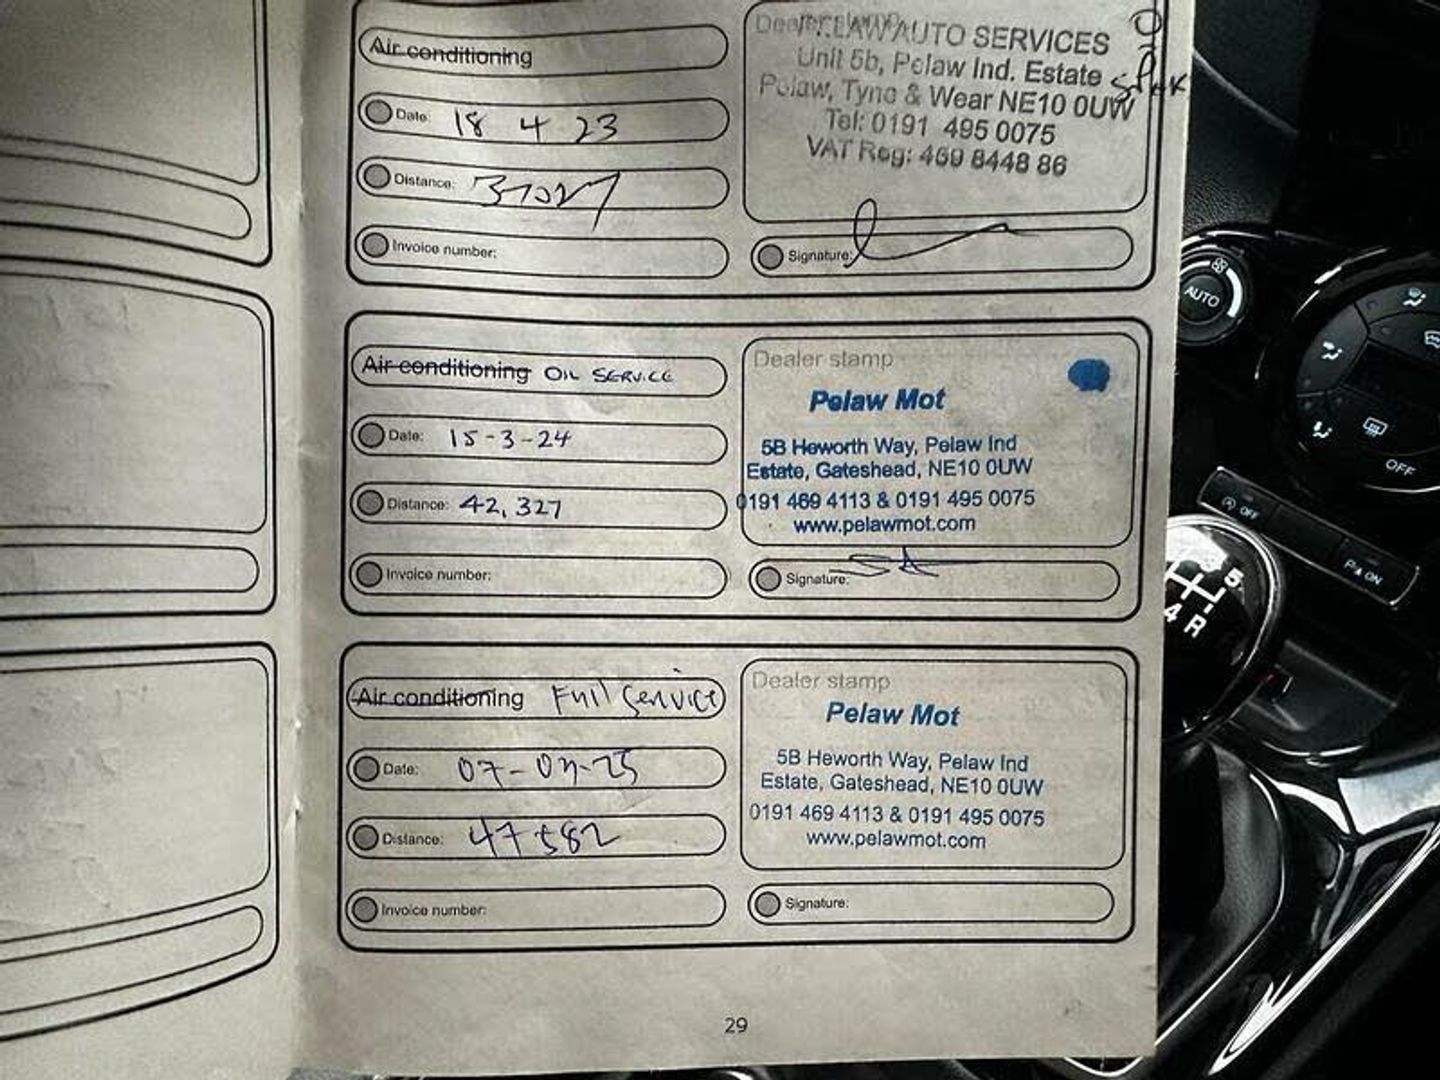 Air conditioning
Date: 18 4 23
Distance:
Invoice number:
Dealer stamp
PELAW AUTO SERVICES
Unit 5b, Pelaw Ind. Estate
Pelaw, Tyne & Wear NE10 0UW
Tel: 0191 495 0075
VAT Reg: 469 8448 86
Signature:
Air conditioning OIL SERVICE
Date: 15-3-24
Distance: 42,327
Invoice number:
Dealer stamp
Pelaw Mot
5B Heworth Way, Pelaw Ind
Estate, Gateshead, NE10 0UW
0191 469 4113 & 0191 495 0075
www.pelawmot.com
Signature:
Air conditioning Full Service
Date:
Distance: 47582
Invoice number:
Dealer stamp
Pelaw Mot
5B Heworth Way, Pelaw Ind
Estate, Gateshead, NE10 0UW
0191 469 4113 & 0191 495 0075
www.pelawmot.com
Signature:
29
AUTO
OFF
OFF
ON
5
4 R